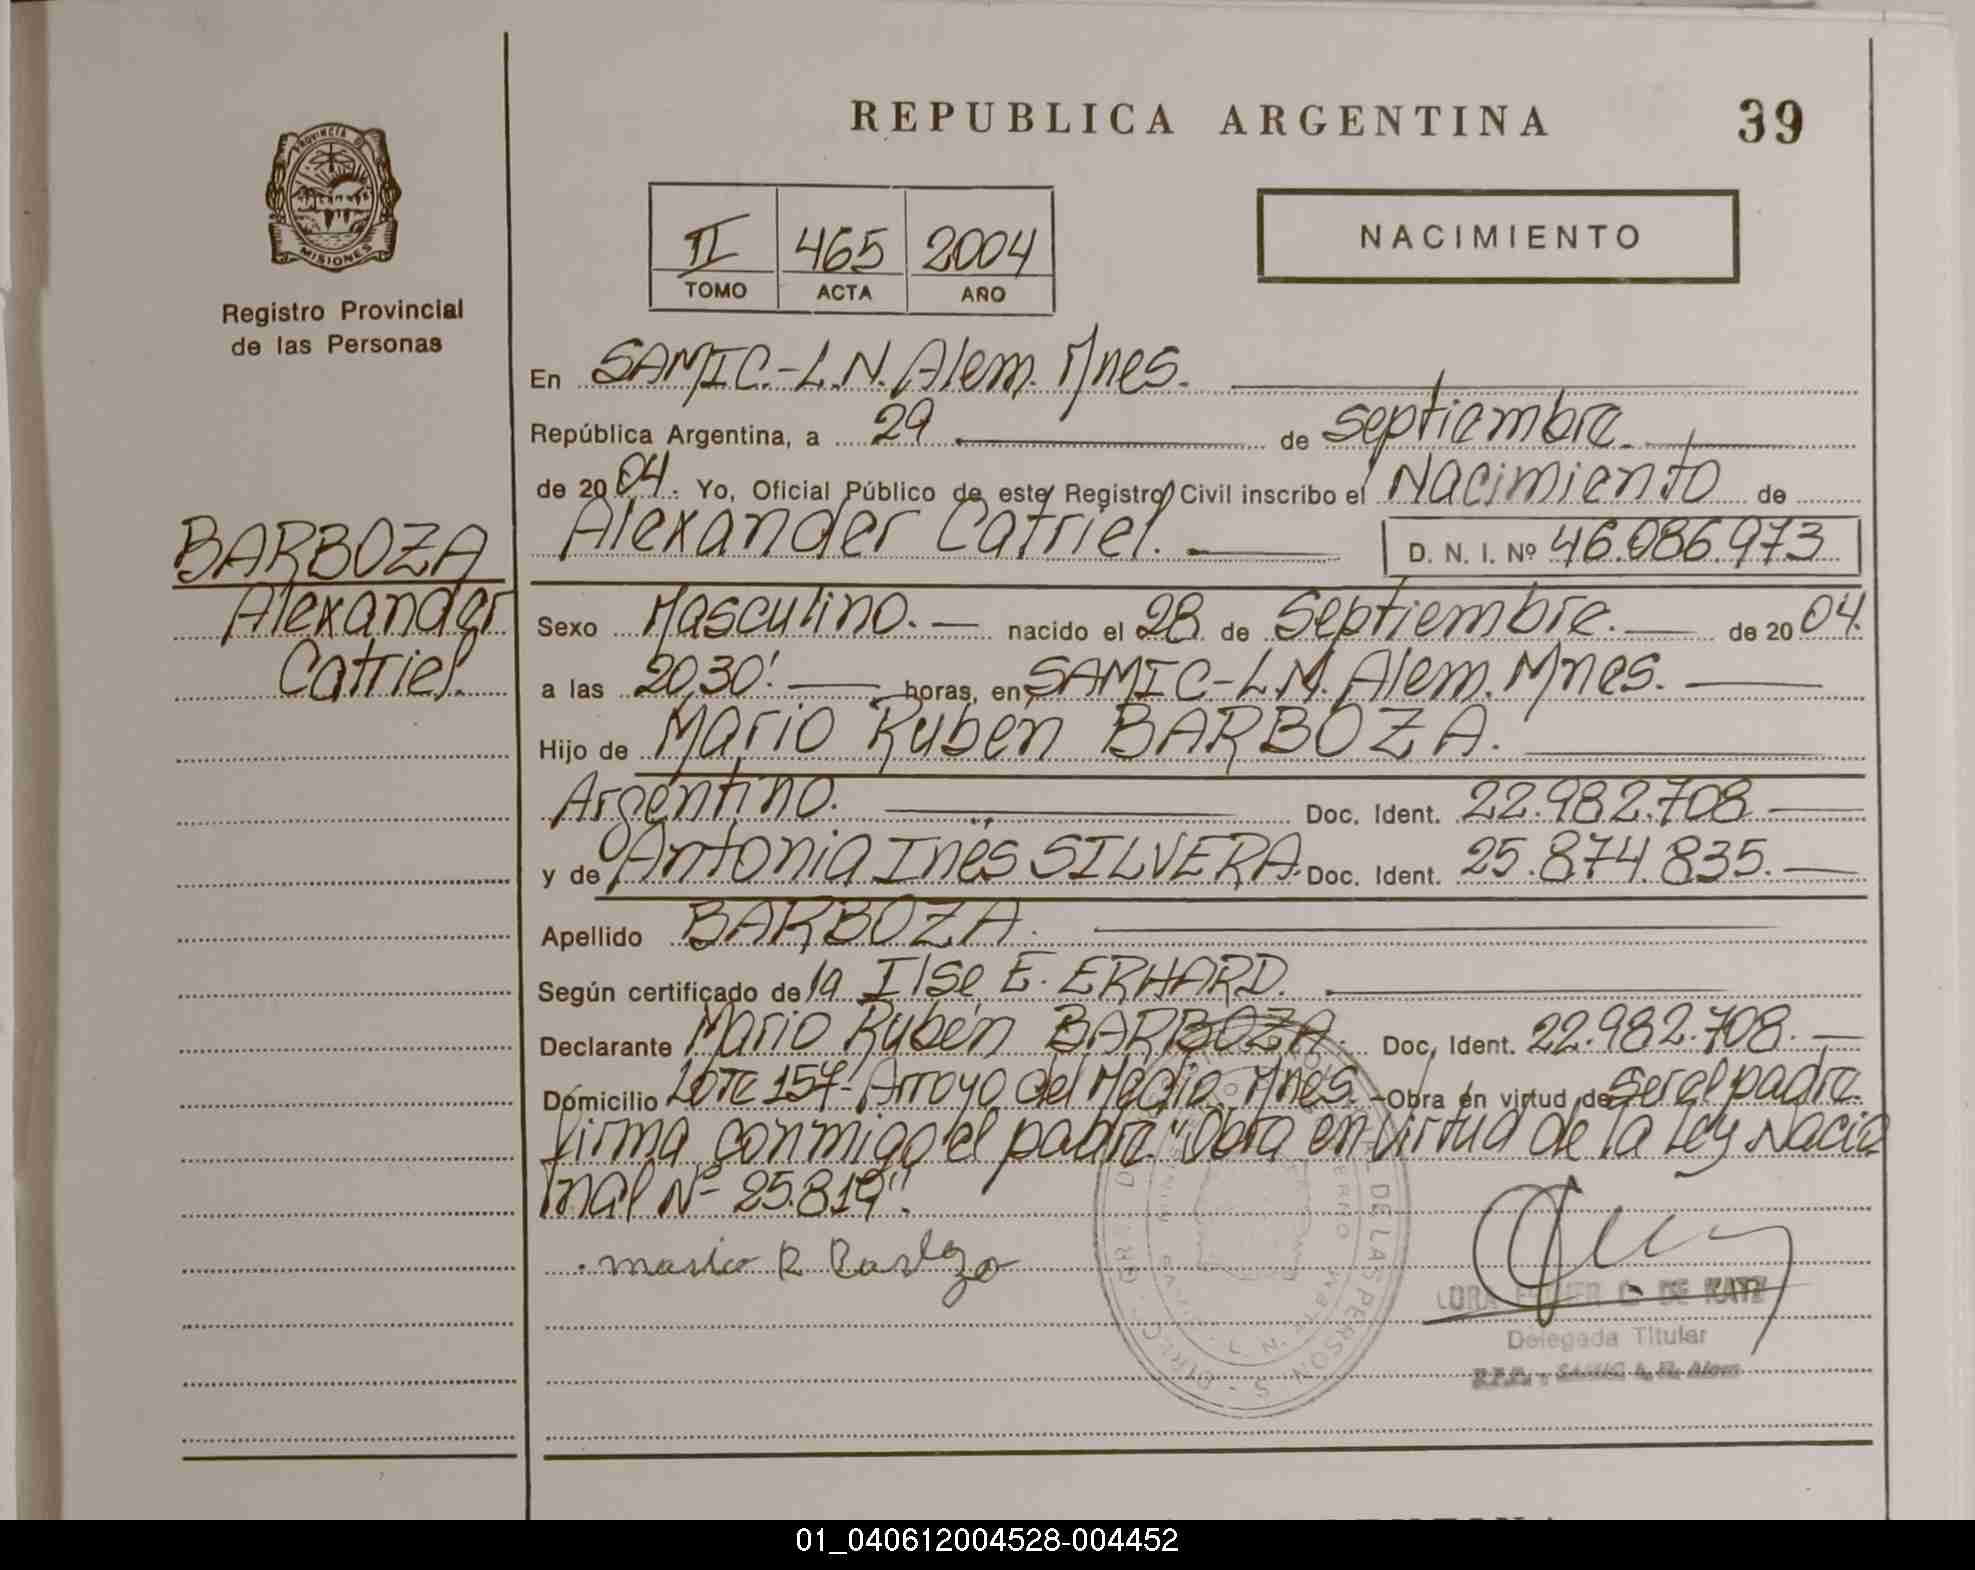 REPUBLICA ARGENTINA 39
PROVINCIA D
MISIONES
Registro Provincial
de las Personas
II 465 2004
TOMO ACTA AÑO
NACIMIENTO
En SAMIC.-L.N. Alem. Mnes.
República Argentina, a 29 de septiembre.
de 2004. Yo, Oficial Público de este Registro Civil inscribo el Nacimiento de
Alexander Catriel. D. N. I. Nº 46.086.973
BARBOZA
Alexander
Catriel.
Sexo Masculino. nacido el 28. de Septiembre. de 2004.
a las 20,30'. horas, en SAMIC-L.N. Alem. Mnes.
Hijo de Mario Rubén BARBOZA.
Argentino. Doc. Ident. 22.982.708
y de Antonia Inés SILVERA. Doc. Ident. 25.874.835.
Apellido BARBOZA.
Según certificado de la Ilse E. ERHARD.
Declarante Mario Rubén BARBOZA. Doc. Ident. 22.982.708.
Domicilio Lote 157- Arroyo del Medio. Mnes. -Obra en virtud de ser el padre.
firma conmigo el padre. "Obra en virtud de la Ley Nacio
nal Nº 25.819".
DE LAS PERSON
C. DE KATZ
Delegada Titular
R.P.P. - SAMIC L. N. Alem
01_040612004528-004452